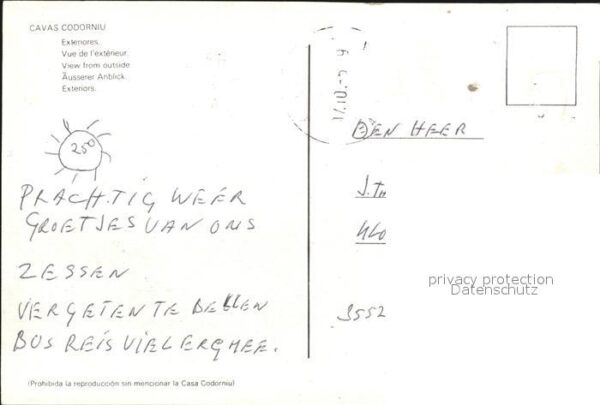 CAVAS CODORNIU
Exteriores.
Vue de l'extérieur.
View from outside
Äusserer Anblick.
Exteriors.
25°
PRACHTIG WEER
GROETJES VAN ONS
ZESSEN
VERGETEN TE BELLEN
BUS REIS VIEL ERG MEE.
(Prohibida la reproducción sin mencionar la Casa Codorniu)
DEN HEER
J. TH
3552
privacy protection
Datenschutz